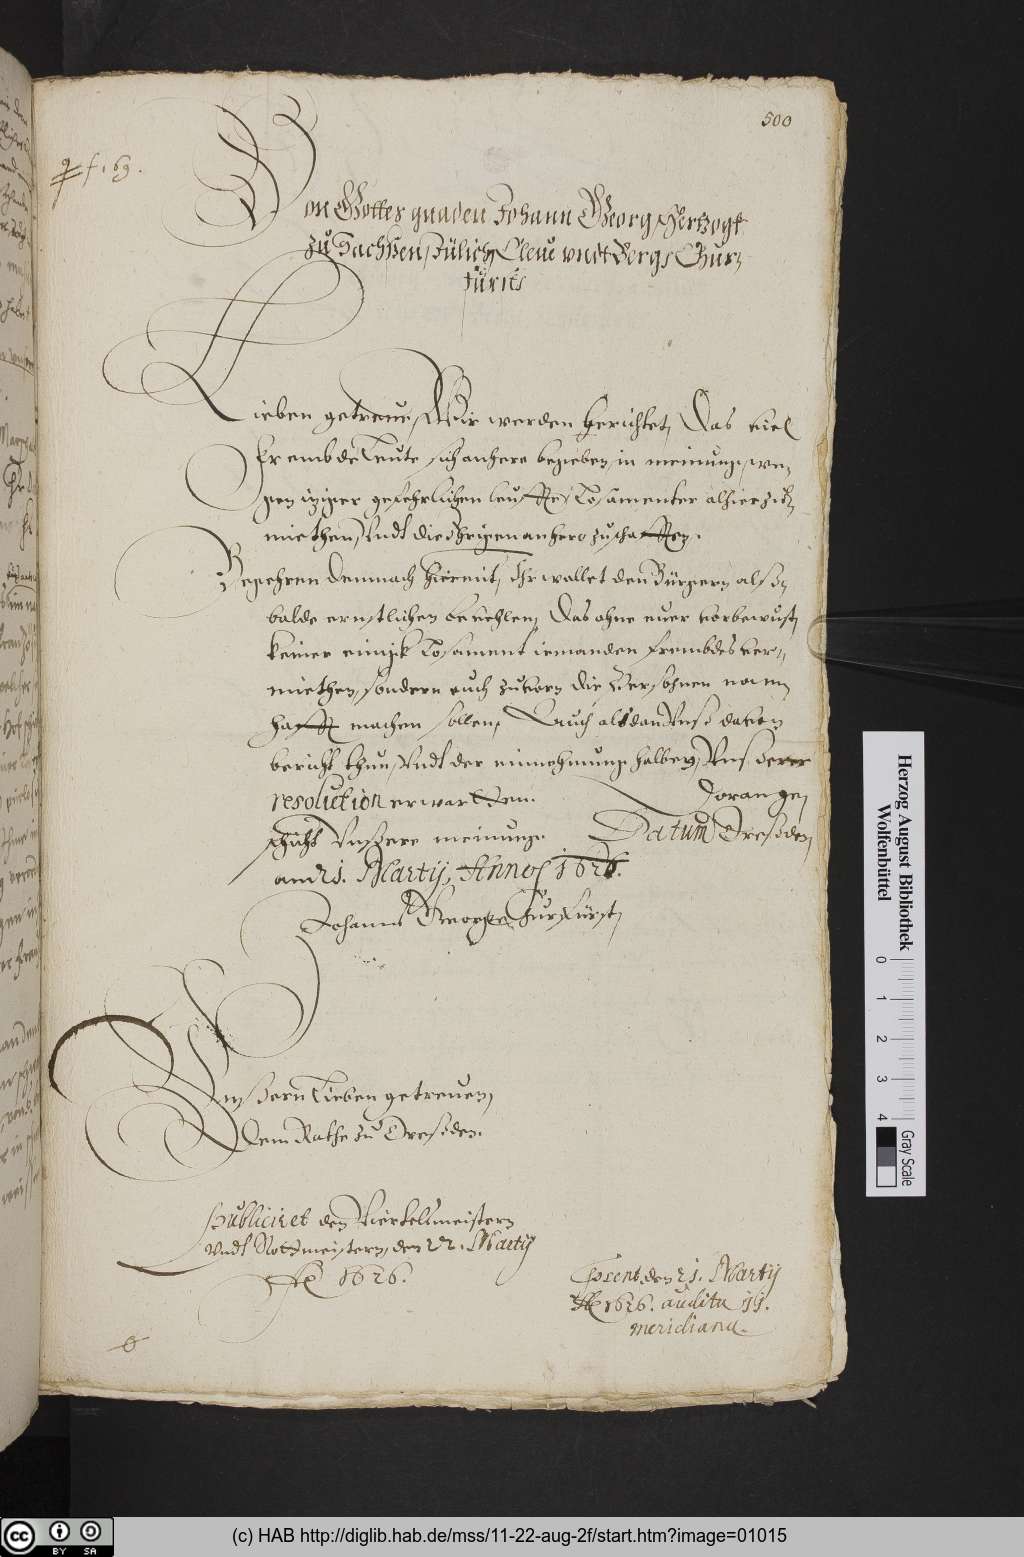 500
f. 69.
Von Gottes gnaden Johann Georg Hertzogk
zu Sachßen, Jülich, Cleve undt Bergk Chur-
fürst
Lieben getreue, Wir werden berichtet, Das viel
frembde Leute sich anhero begeben, in meinunge, we-
gen iziger gefehrlichen leuffte, Losamenter alhier zu
miethen, Undt die Ihrigen anhero zuschaffen.
Begehren demnach hiermit, Ihr wollet den Bürgern alß-
balde ernstlichen bevehlen, Das ohne euer vorbewust,
keiner einigk Losament iemanden frembdes ver-
miethen, sondern euch zuvorn die Persohnen namm-
hafft machen sollen, Auch alsdan Unß davon
bericht thun, Undt der einnehmunge halben, Unserer
resolution erwartten. Doran ge-
schicht Unßere meinunge. Datum Dresden,
am 21. Martij, Anno 1626.
Johanns George Churfürst,
Unsern Lieben getreuen,
Dem Rathe zu Dresden.
Publiciret den Viertelsmeistern
undt Rottmeistern, den 22. Martij
1626.
Praesent. den 21. Martij
1626. audita
meridiana.
Herzog August Bibliothek
Wolfenbüttel
0 1 2 3 4
Gray Scale
cc BY SA
(c) HAB http://diglib.hab.de/mss/11-22-aug-2f/start.htm?image=01015